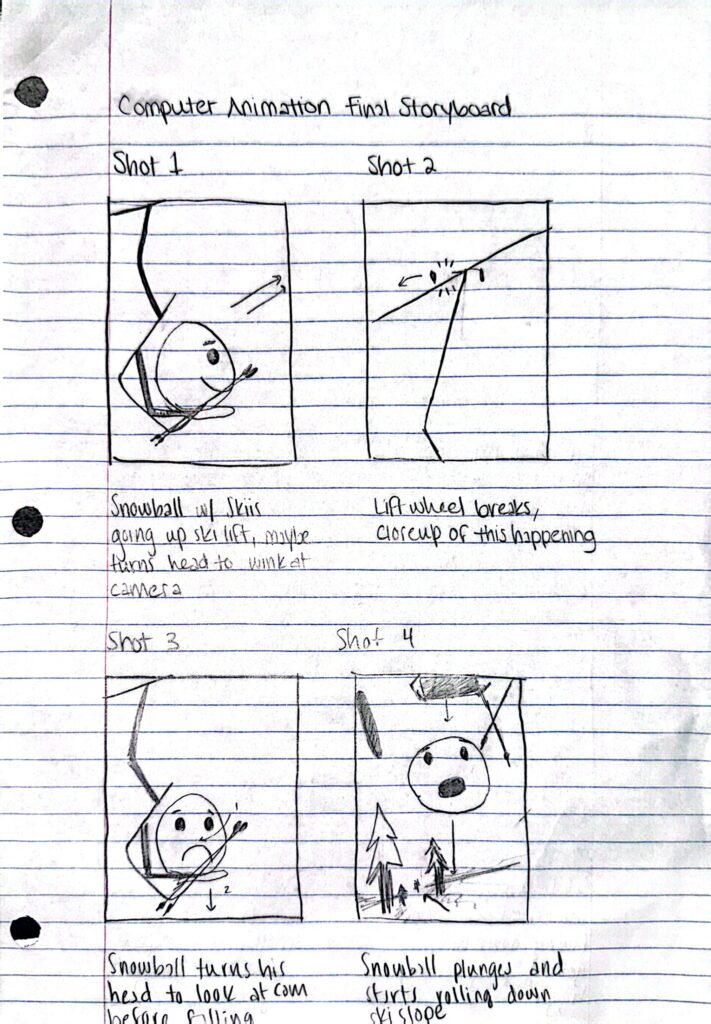 Computer Animation Final Storyboard
Shot 1
Shot 2
Snowball w/ Skiis
going up ski lift, maybe
turns head to wink at
camera
Lift wheel breaks,
closeup of this happening
Shot 3
1
2
Shot 4
Snowball turns his
head to look at cam
before falling
Snowball plunges and
starts rolling down
ski slope